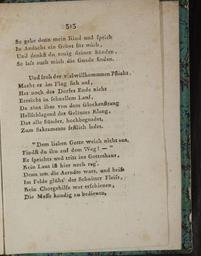 313
So gehe denn mein Kind und sprich
In Andacht ein Gebet für mich,
Und denkst du ewig deiner Sünden,
So laß auch mich die Gnade finden.
Und froh der vielwillkommnen Pflicht,
Macht er im Flug sich auf,
Hat noch des Dorfes Ende nicht
Erreicht in schnellem Lauf,
Da tönt ihm von dem Glockenstrang
Hellschlagend des Geläutes Klang,
Das alle Sünder, hochbegnadet,
Zum Sakramente festlich ladet.
"Dem lieben Gotte weich nicht aus,
Findst du ihn auf dem Weg! —"
Er sprichts und tritt ins Gotteshaus,
Kein Laut ist hier noch reg'.
Denn um die Aerndte wars, und heiß
Im Felde glüht' der Schnitter Fleiß,
Kein Chorgehilfe war erschienen,
Die Messe kundig zu bedienen,